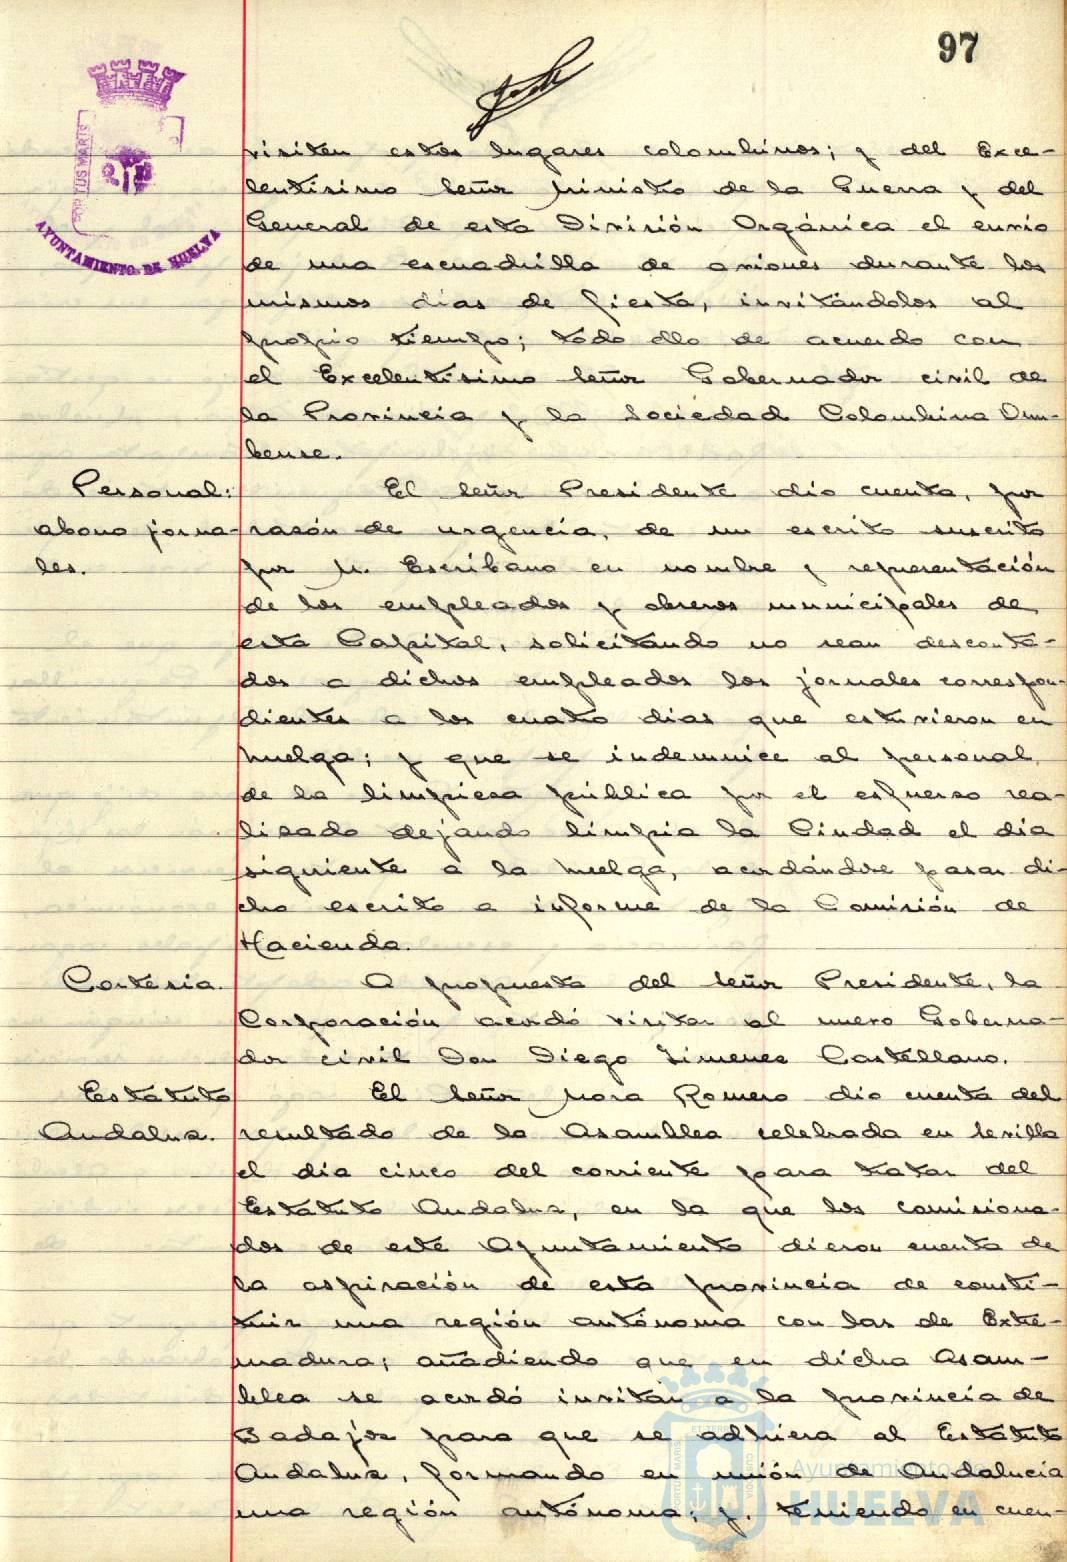 97
PORTUS MARIS
AYUNTAMIENTO DE HUELVA
visiten estos lugares colombinos; y del Exce-
lentísimo Señor Ministro de la Guerra y del
General de esta División Orgánica el envio
de una escuadrilla de aviones durante los
mismos dias de fiesta, invitándolos al
propio tiempo; todo ello de acuerdo con
el Excelentísimo Señor Gobernador civil de
la Provincia y la Sociedad Colombina Onu-
bense.
Personal:
abono jorna-
les.
El Señor Presidente dio cuenta, por
rasón de urgencia, de un escrito suscrito
por M. Escribano en nombre y representación
de los empleados y obreros municipales de
esta Capital, solicitando no sean desconta-
dos a dichos empleados los jornales correspon-
dientes a los cuatro dias que estuvieron en
huelga; y que se indemnice al personal
de la limpiesa pública por el esfuerso rea-
lisado dejando limpia la Ciudad el dia
siguiente a la huelga, acordándose pasar di-
cho escrito a informe de la Comisión de
Hacienda.
Cortesia.
A propuesta del Señor Presidente, la
Corporación acordó visitar al nuevo Goberna-
dor civil Don Diego Jimenes Castellano.
Estatuto
Andalus.
El Señor Mora Romero dio cuenta del
resultado de la Asamblea celebrada en Sevilla
el dia cinco del corriente para tratar del
Estatuto Andalus, en la que los comisiona-
dos de este Ayuntamiento dieron cuenta de
la aspiración de esta provincia de consti-
tuir una región autónoma con las de Extre-
madura; añadiendo que en dicha Asam-
blea se acordó invitar a la provincia de
Badajos para que se adhiera al Estatuto
Andalus, formando en unión de Andalucia
una región autónoma; y, teniendo en cuen-
Ayuntamiento de
HUELVA